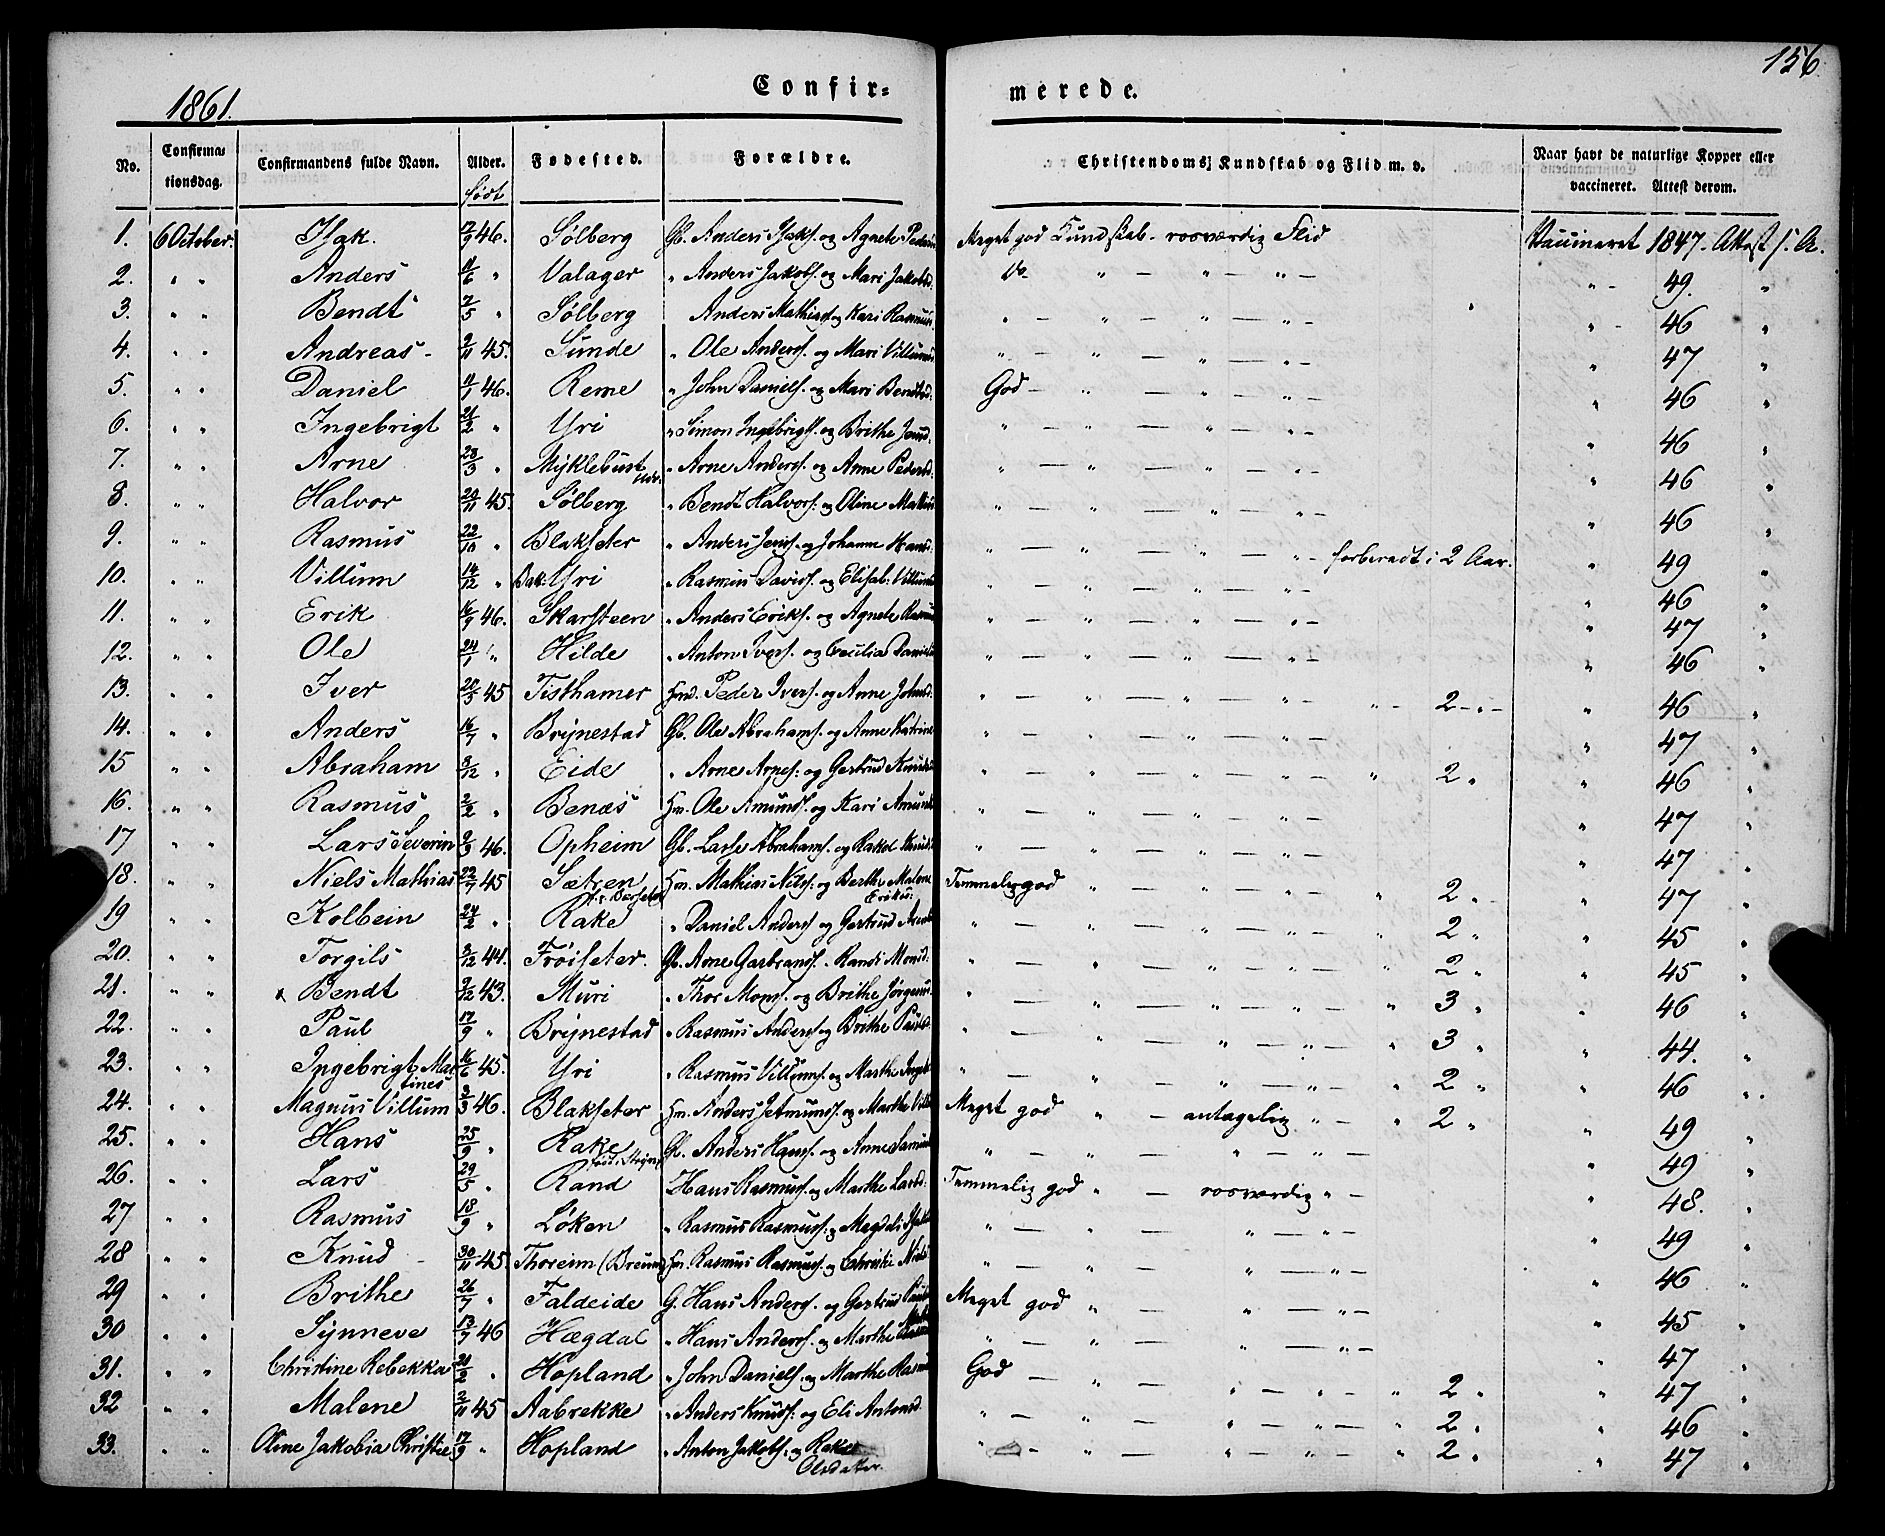 156
1861.
Confir-
merede.
No. Confirmationsdag. Confirmandens fulde Navn. Alder. født Fødested. Forældre. Christendoms Kundskab og Flid m. v. Naar havt de naturlige Kopper eller vaccineret. Attest derom.
1. 6 October. Isak. 46. Sølberg Gb. Anders Isaks. og Agnete Meget god Kundskab - rosværdig Flid Vaccineret 1847. Attest
2. " " Anders 11/6 " Valager " Anders Jakobs. og Mari Jakobsd. " - " - " - 49. "
3. " " Bendt 7/5 " Sølberg Anders Mathias og Kari Rasmus " - " - " - " - 46 "
4. " " Andreas - 2/11 45. Sunde " Ole Anders. og Mari Villums " - " - " - " - 47 "
5. " " Daniel 46. Reme " John Daniels. og Mari Bendtsd. God - " - " - " - 46 "
6. " " Ingebrigt 21/2 " Yri " Simon Ingebrigts. og Brithe " - " - " - " - 46 "
7. " " Arne 28/3 " Myklebust " Arne Anders. og Anne Pedersd. " - " - " - " - 46 "
8. " " Halvor 20/11 45. Sølberg " Bendt Halvors. og Oline " - " - " - " - 46 "
9. " " Rasmus 22/10 " Blakseter " Anders Jens. og Johanne Hans " - " - " - " - forberedt i 2 Aar. 49 "
10. " " Villum 14/12 " Yri " Rasmus Davids. og Elisab. Villum " - " - " - " - 46 "
11. " " Erik 16/9 46. Skarsteen " Anders Eriks. og Agnete Rasmus " - " - " - " - 47 "
12. " " Ole 24/1 " Hilde " Anton Ivers. og Cecilia Daniels " - " - " - " - 46 "
13. " " Iver 20/5 45 Tisthamer Hmd. Peder Ivers. og Anne Johns " - " - " - " - " - 2 - " - 46 "
14. " " Anders 16/7 " Brynestad Gb. Ole Abrahams. og Anne Katrine " - " - " - " - 47 "
15 " " Abraham 8/12 " Eide " Arne Arnes. og Gertrud Knuds " - " - " - " - " 2 " 46 "
16. " " Rasmus 2/2 " Benæs Hm. Ole Amunds. og Kari Amunds " - " - " - " - 47 "
17 " " Lars Severin 46. Opheim Gb. Lasse Abrahams. og Rakel Knuds " - " - " - " - 47 "
18. " " Niels Mathias 22/7 45 Sætren Hm. Mathias Nils. og Berthe Malene Eriks: Temmelig god " - " - " - " 2 " 47 "
19 " " Kolbein 24/2 " Rake " Daniel Anders og Gertrud " - " - " - " - " 2 " 45 "
20. " " Torgils 8/12 44. Frøiseter. Gb. Arne Garbrands. Randi Monsd. " - " - " - " - " 2 " 45 "
21. " " x Bendt 9/12 43. Muri " Thor Mons. og Brithe Jørgens " - " - " - " - " 3 " 46 "
22. " " Paul 17/9 " Brynestad " Rasmus Anders og Brithe Pauls " - " - " - " - " 3 " 44. "
23. " " Ingebrigt Martines 16/6 45. Yri " Rasmus Villums. og Marthe Ingeb " - " - " - " - " 2 " 46 "
24. " " Magnus Villum 46. Blakseter Hm. Anders Jetmunds. og Marthe Meget god " - antagelig " - " 2 " 49 "
25. " " Hans 25/9 " Rake Gb. Anders Hans. og Anne " - " - " - " - 49 "
26. " " Lars 29/5 " Rand Hans Rasmus. og Marthe Larsd. Temmelig god " - rosværdig " - 48. "
27 " " Rasmus 18/9 " Løken " Rasmus Rasmus. og Magdeli " - " - " - " - 49 "
28 " " Knud - 30/11 45. Thoreim (Breum) Hm. Rasmus Rasmus. og Christie Niels " - " - " - " - 46 "
29 " " Brithe 26/7 " Faldeide G. Hans Anders. og Gertrud Meget god " - " - " - 45 "
30 " " Synneve 13/7 46 Hægdal " Hans Anders. og Marthe " - " - " - " - 47 "
31. " " Christine Rebekka " Hopland " John Daniels. og Marthe Rasmus God - " - " - " - " 2 " 47 "
32 " " Malene 2/11 45 Aabrekke " Anders Knuds: og Eli Antonsd. " - " - " - " - " 2 " 46 "
33. " " Oline Jakobia Christie 17/9 " Hopland " Anton Jakobs. og Rakel Olsdatter. " - " - " - " - " 2 " 47 "